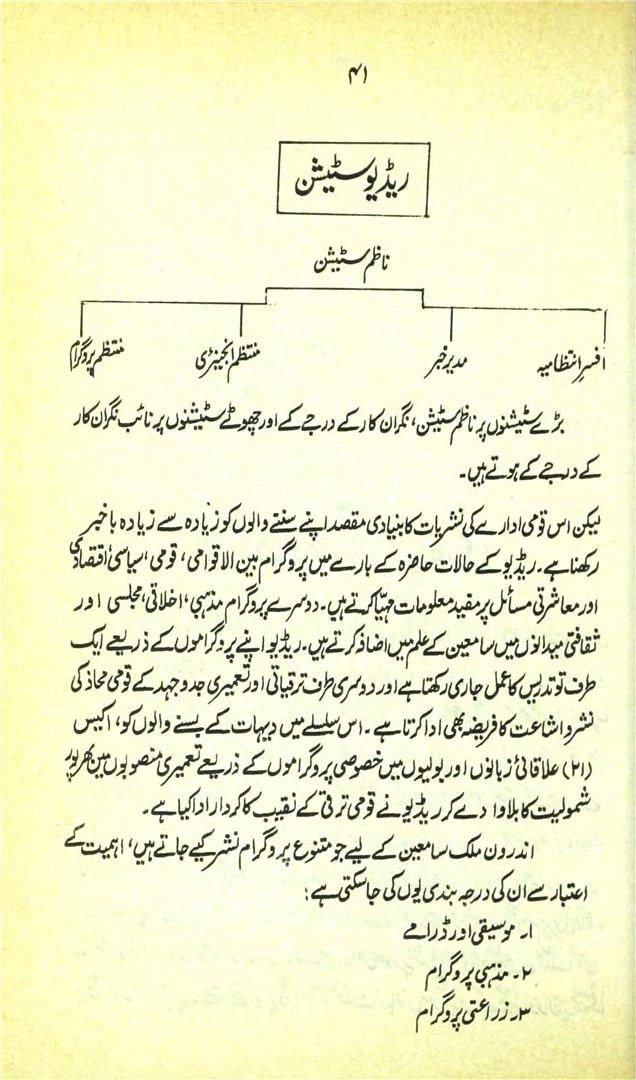 ۴۱
ریڈیو سٹیشن
ناظم سٹیشن
افسرِ انتظامیہ مدیر خبر منتظم انجینئری منتظم پروگرام
بڑے سٹیشنوں پر ناظم سٹیشن، نگران کار کے درجے کے اور چھوٹے سٹیشنوں پر نائب نگران کار
کے درجے کے ہوتے ہیں۔
لیکن اس قومی ادارے کی نشریات کا بنیادی مقصد اپنے سننے والوں کو زیادہ سے زیادہ باخبر
رکھنا ہے۔ ریڈیو کے حالات حاضرہ کے بارے میں پروگرام بین الاقوامی، قومی، سیاسی، اقتصادی
اور معاشرتی مسائل پر مفید معلومات مہیّا کرتے ہیں۔ دوسرے پروگرام مذہبی، اخلاقی، مجلسی اور
ثقافتی میدانوں میں سامعین کے علم میں اضافہ کرتے ہیں۔ ریڈیو اپنے پروگراموں کے ذریعے ایک
طرف تو تدریس کا عمل جاری رکھتا ہے اور دوسری طرف ترقیاتی اور تعمیری جدوجہد کے قومی محاذ کی
نشر و اشاعت کا فریضہ بھی ادا کرتا ہے۔ اس سلسلے میں دیہات کے بسنے والوں کو، اکیس
(۲۱) علاقائی زبانوں اور بولیوں میں خصوصی پروگراموں کے ذریعے تعمیری منصوبوں میں بھرپور
شمولیت کا بلاوا دے کر ریڈیو نے قومی ترقی کے نقیب کا کردار ادا کیا ہے۔
اندرون ملک سامعین کے لیے جو متنوع پروگرام نشر کیے جاتے ہیں، اہمیت کے
اعتبار سے ان کی درجہ بندی یوں کی جا سکتی ہے:
۱۔ موسیقی اور ڈرامے
۲۔ مذہبی پروگرام
۳۔ زراعتی پروگرام